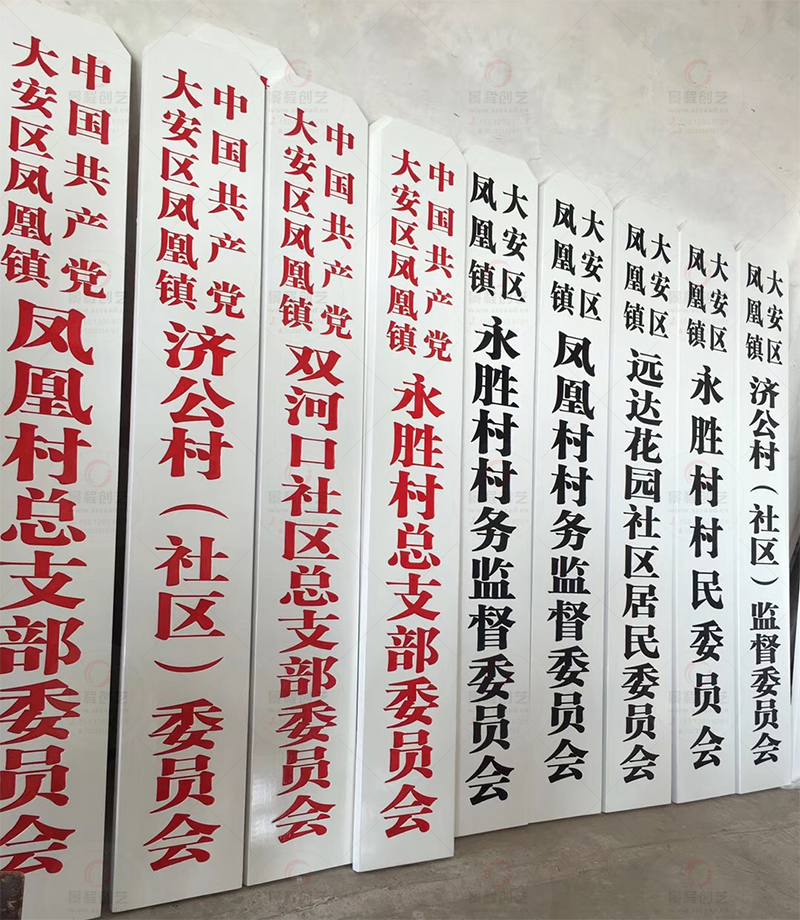 中国共产党
大安区凤凰镇
凤凰村总支部委员会
中国共产党
大安区凤凰镇
济公村（社区）委员会
中国共产党
大安区凤凰镇
双河口社区总支部委员会
中国共产党
大安区凤凰镇
永胜村总支部委员会
大安区
凤凰镇
永胜村村务监督委员会
大安区
凤凰镇
凤凰村村务监督委员会
大安区
凤凰镇
远达花园社区居民委员会
大安区
凤凰镇
永胜村村民委员会
大安区
凤凰镇
济公村（社区）监督委员会
景程创艺